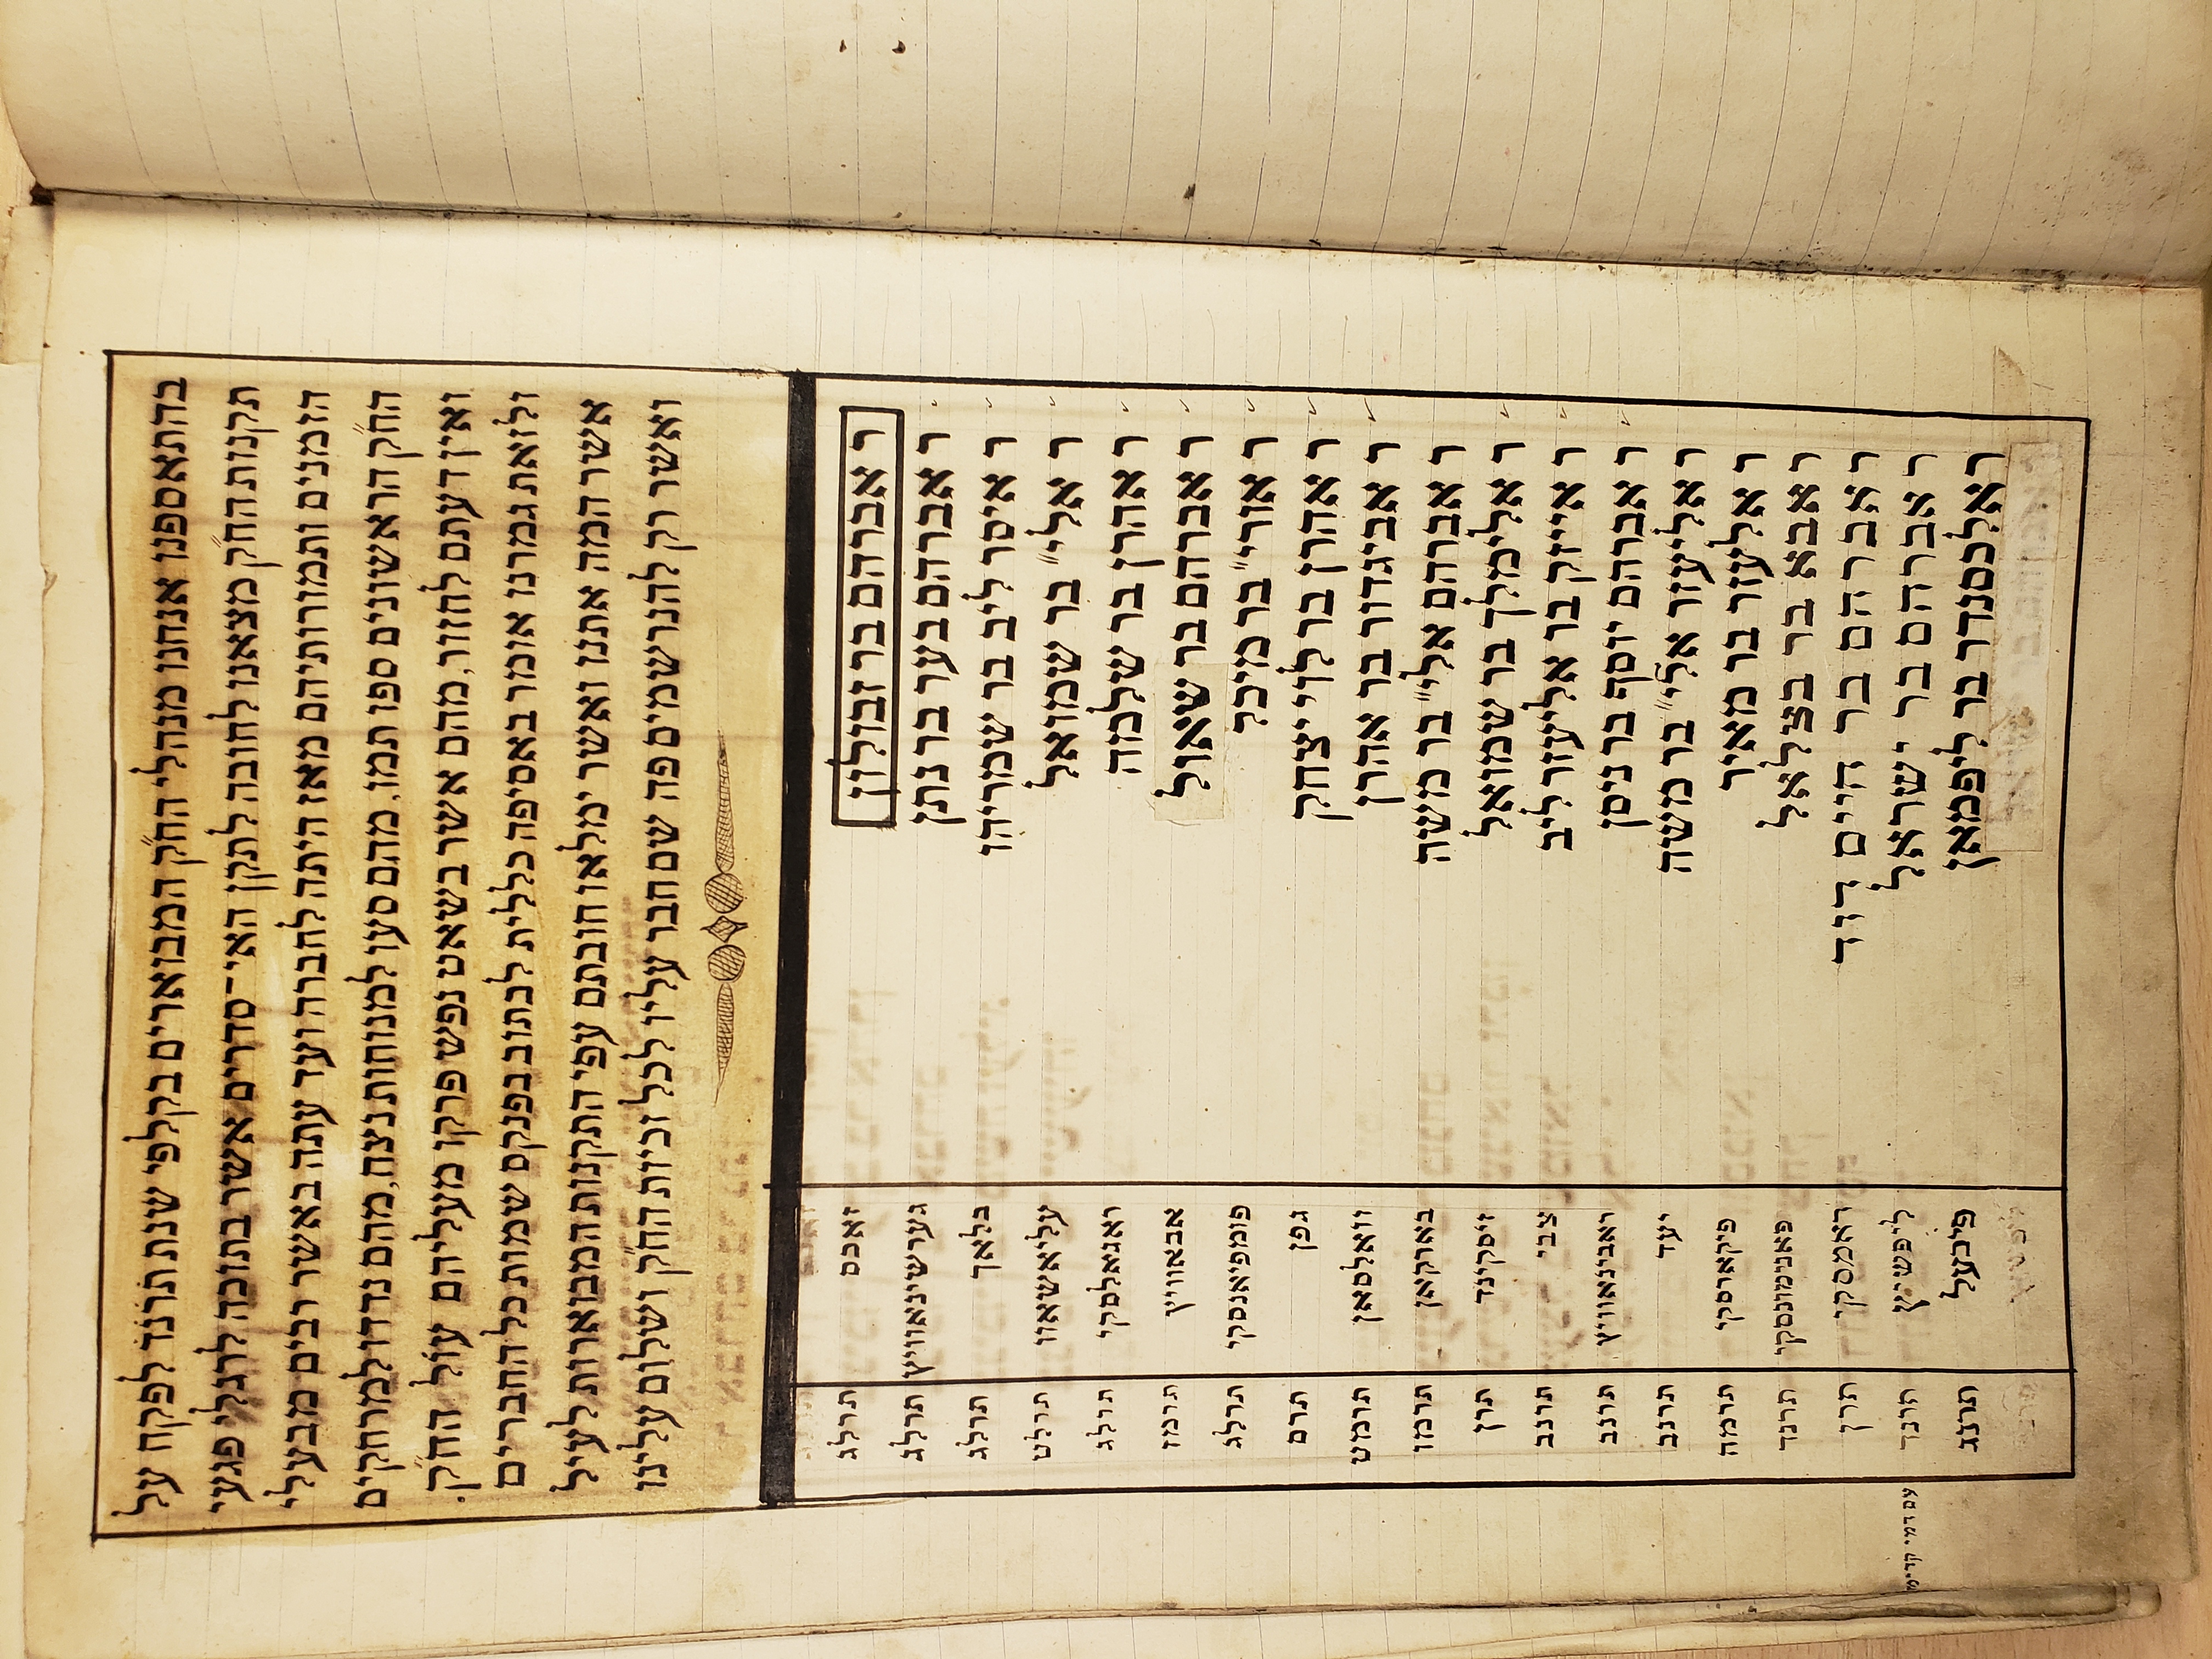 בהתאספנו אנחנו מנהלי הח״ק המבוארים בקלפי שנת תרנד לפקח על
תקנות הח״ק מצאנו לחובה לתקן האי־סדרים אשר בתוכה לרגלי פגעי
הזמנים ותמורותיהם מאז היתה לחברה ועד עתה באשר רבים מבעלי
הח״ק הראשונים ספו תמו, מהם סעו למנוחות נצח, מהם נדדו למרחקים
ואין דעתם לחזור, מהם אשר בשאט נפש פרקו מעליהם עול הח״ק.
ולזאת גמרנו אומר באסיפה כללית לכתוב בפנקס שמות כל החברים
אשר המה אתנו ואשר ימלאו חובתם עפי התקנות המבוארות לעיל
ואשר רק להנרשמים פה שם חבר עליו לכל זכיות הח״ק ושלום עלינו
ר אברהם בר זבולון זאכס תרלג
ר אברהם בער בר נתן גערשינאוויץ תרלג
ר איסר ליב בר שמריהו בלאך תרלג
ר אלי״ בר שמואל עליאשאוו תרלט
ר אהרן בר שלמה ראגאלסקי תרלג
ר אברהם בר שאול אבאוויץ תרמז
ר אורי״ בר מיכל פומפיאנסקי תרלג
ר אהרן בר לוי יצחק גפן תרם
ר אביגדור בר אהרן וואלסאן תרמט
ר אברהם אלי״ בר משה בארקאן תרמו
ר אלימלך בר שמואל זיסקינד תרן
ר אייזק בר אליעזר ליב צבי תרנב
ר אברהם יוסף בר ניסן ראבינאוויץ תרנב
ר אליעזר אלי״ בר משה יעד תרנב
ר אלעזר בר מאיר פיקארסקי תרמה
ר אבא בר בצלאל פאנימונסקי תרנד
ר אברהם בר חיים דוד ראמסקי תרן
ר אברהם בר ישראל ליפשיץ תרנד עם דמי קדימ
ר אלכסנדר בר ליפמאן פיבעל תרנג
ליפשיץ